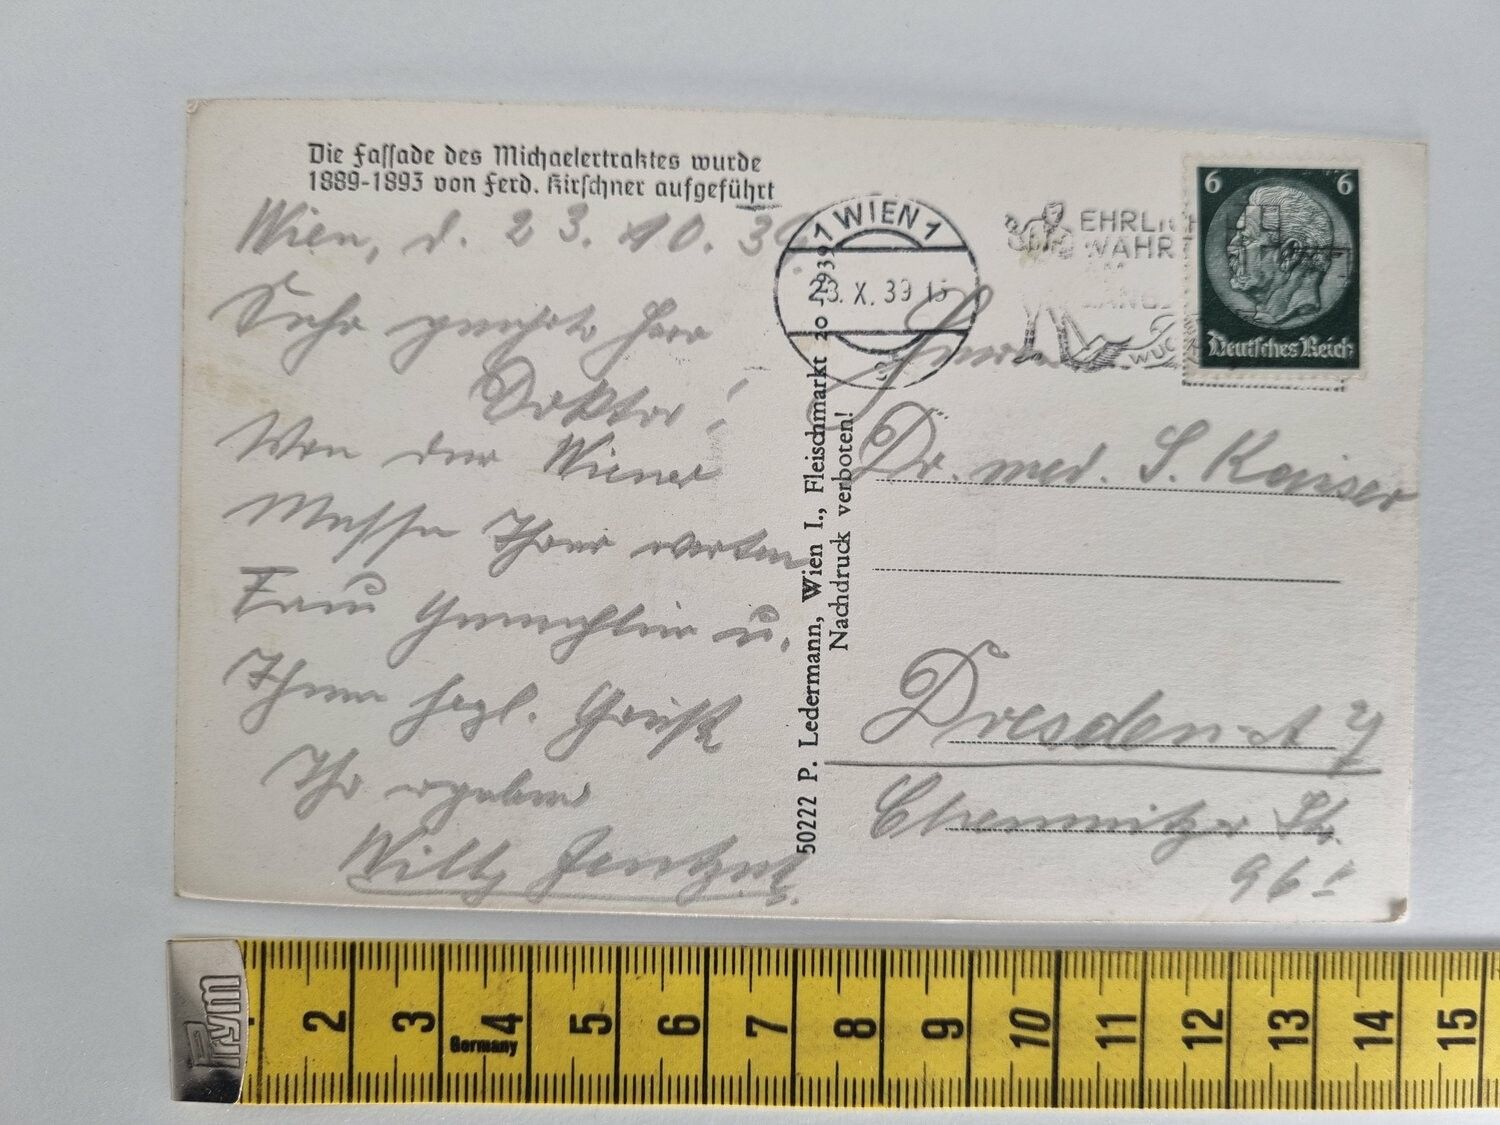 Die Fassade des Michaelertraktes wurde
1889-1893 von Ferd. Kirschner aufgeführt
Wien, d. 23.10.39.
Sehr geehrter Herr
Doktor!
Von der Wiener
Messe Ihrer werten
Frau Gemahlin u.
Ihnen herzl. Grüße
Ihr ergebener
Willy
50222 P. Ledermann, Wien I., Fleischmarkt 20 - 1939
Nachdruck verboten!
1 WIEN 1
23. X. 39
EHRLICH
WAHR
6 6
Deutsches Reich
Herrn
Dr. med. S. Kaiser
Dresden-A
Chemnitzer Str.
96!
Prym
2 3 4 5 6 7 8 9 10 11 12 13 14 15
Germany